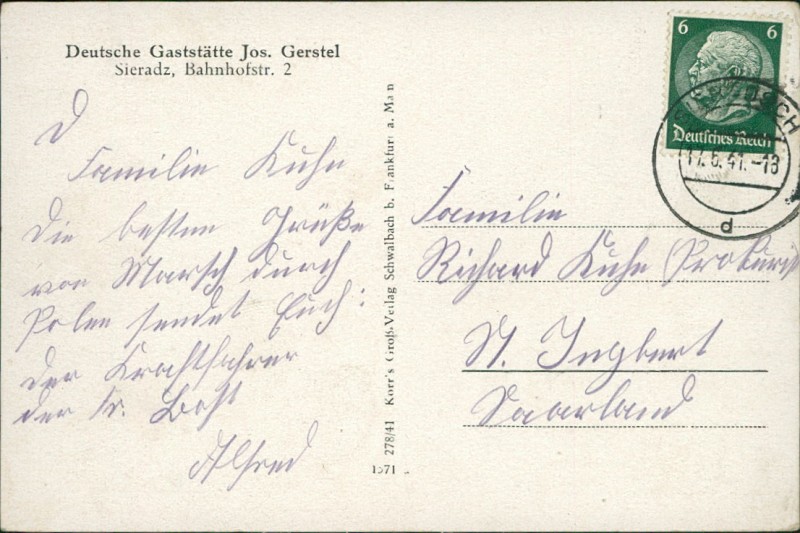 Deutsche Gaststätte Jos. Gerstel
Sieradz, Bahnhofstr. 2
Familie Kuhn
die besten Grüße
vom Marsch durch
Polen sendet Euch:
der Kraftfahrer
der
Alfred
278/41 Korr's Groß-Verlag Schwalbach b. Frankfurt a. Main
1571
6 6
Deutsches Reich
17.6.41.-18
d
Familie
Richard Kuhn (Prokurist
St. Ingbert
Saarland